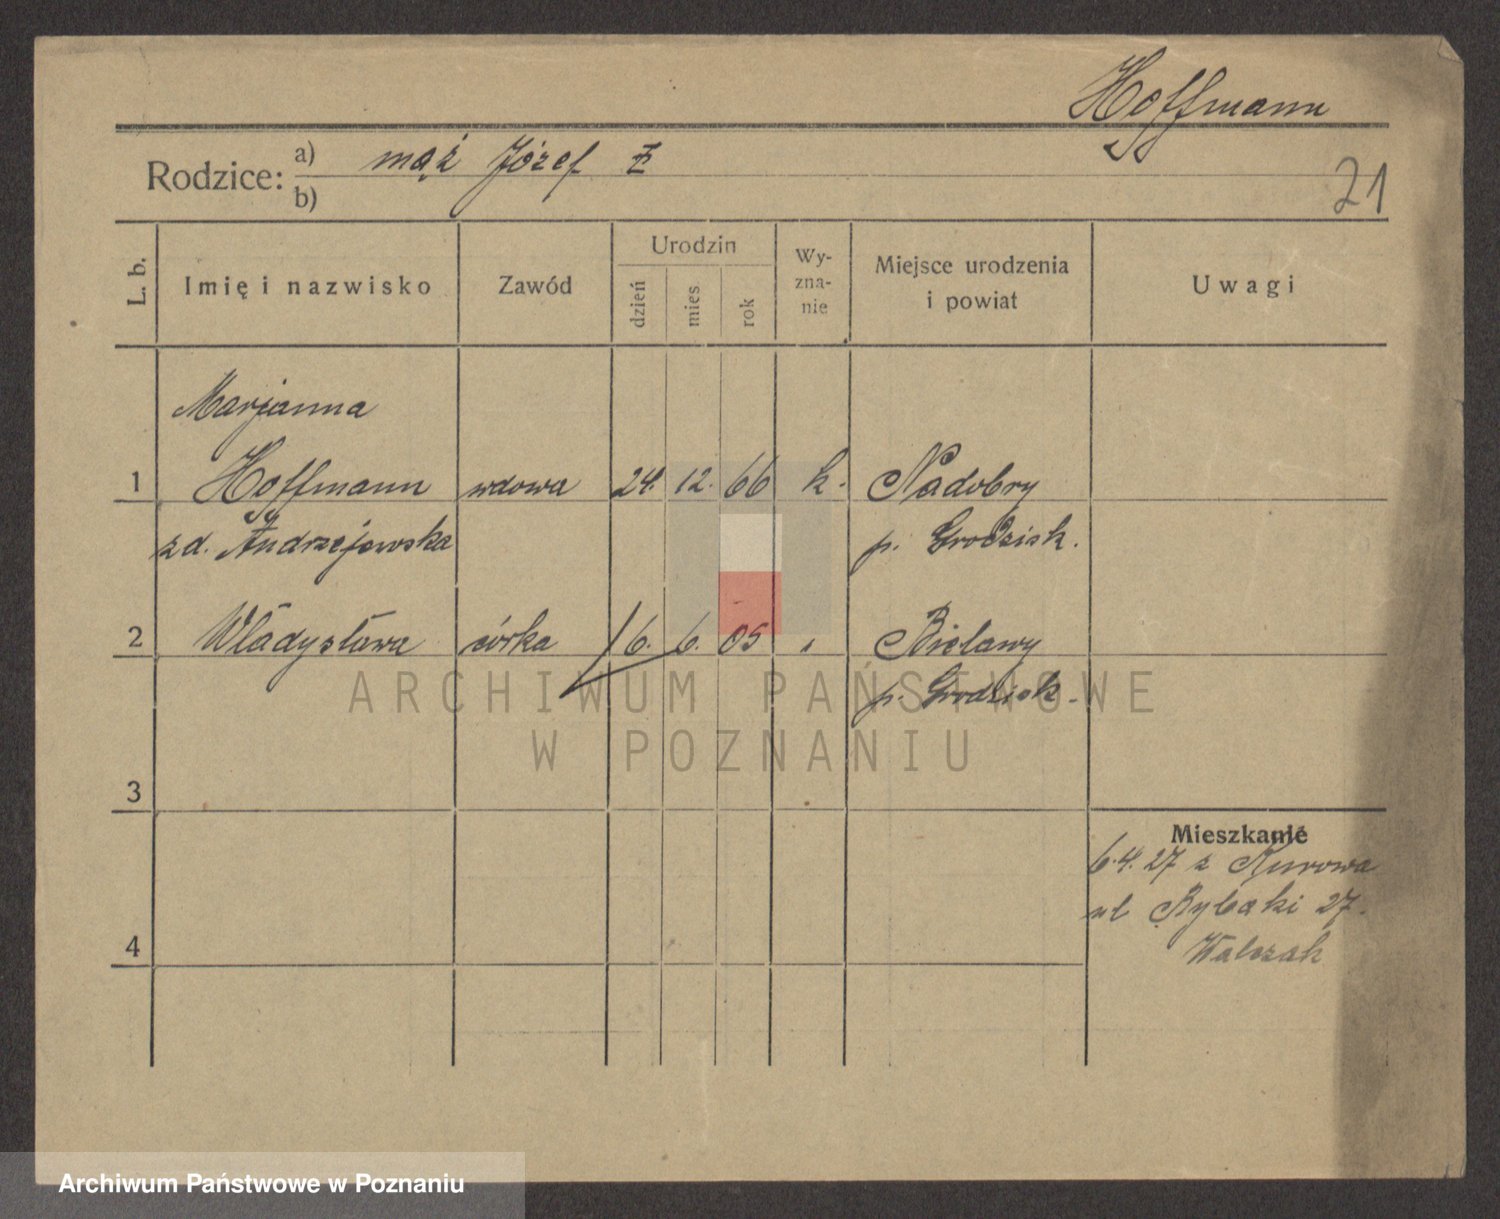 Hoffmann
Rodzice: a) mąż Józef
b)
21
L. b.
Imię i nazwisko
Zawód
Urodzin
dzień
mies
rok
Wy-
zna-
nie
Miejsce urodzenia
i powiat
Uwagi
Marjanna
1 Hoffmann wdowa 24. 12. 66 k. Nadobry
zd. Andrzejewska p. Grodzisk.
2 Władysława córka 6. 6. 05 " Bielawy
p. Grodzisk.
ARCHIWUM PAŃSTWOWE
W POZNANIU
3
Mieszkanie
6.4.27 z Kurowa
ul Rybaki 27.
4 Walczak
Archiwum Państwowe w Poznaniu